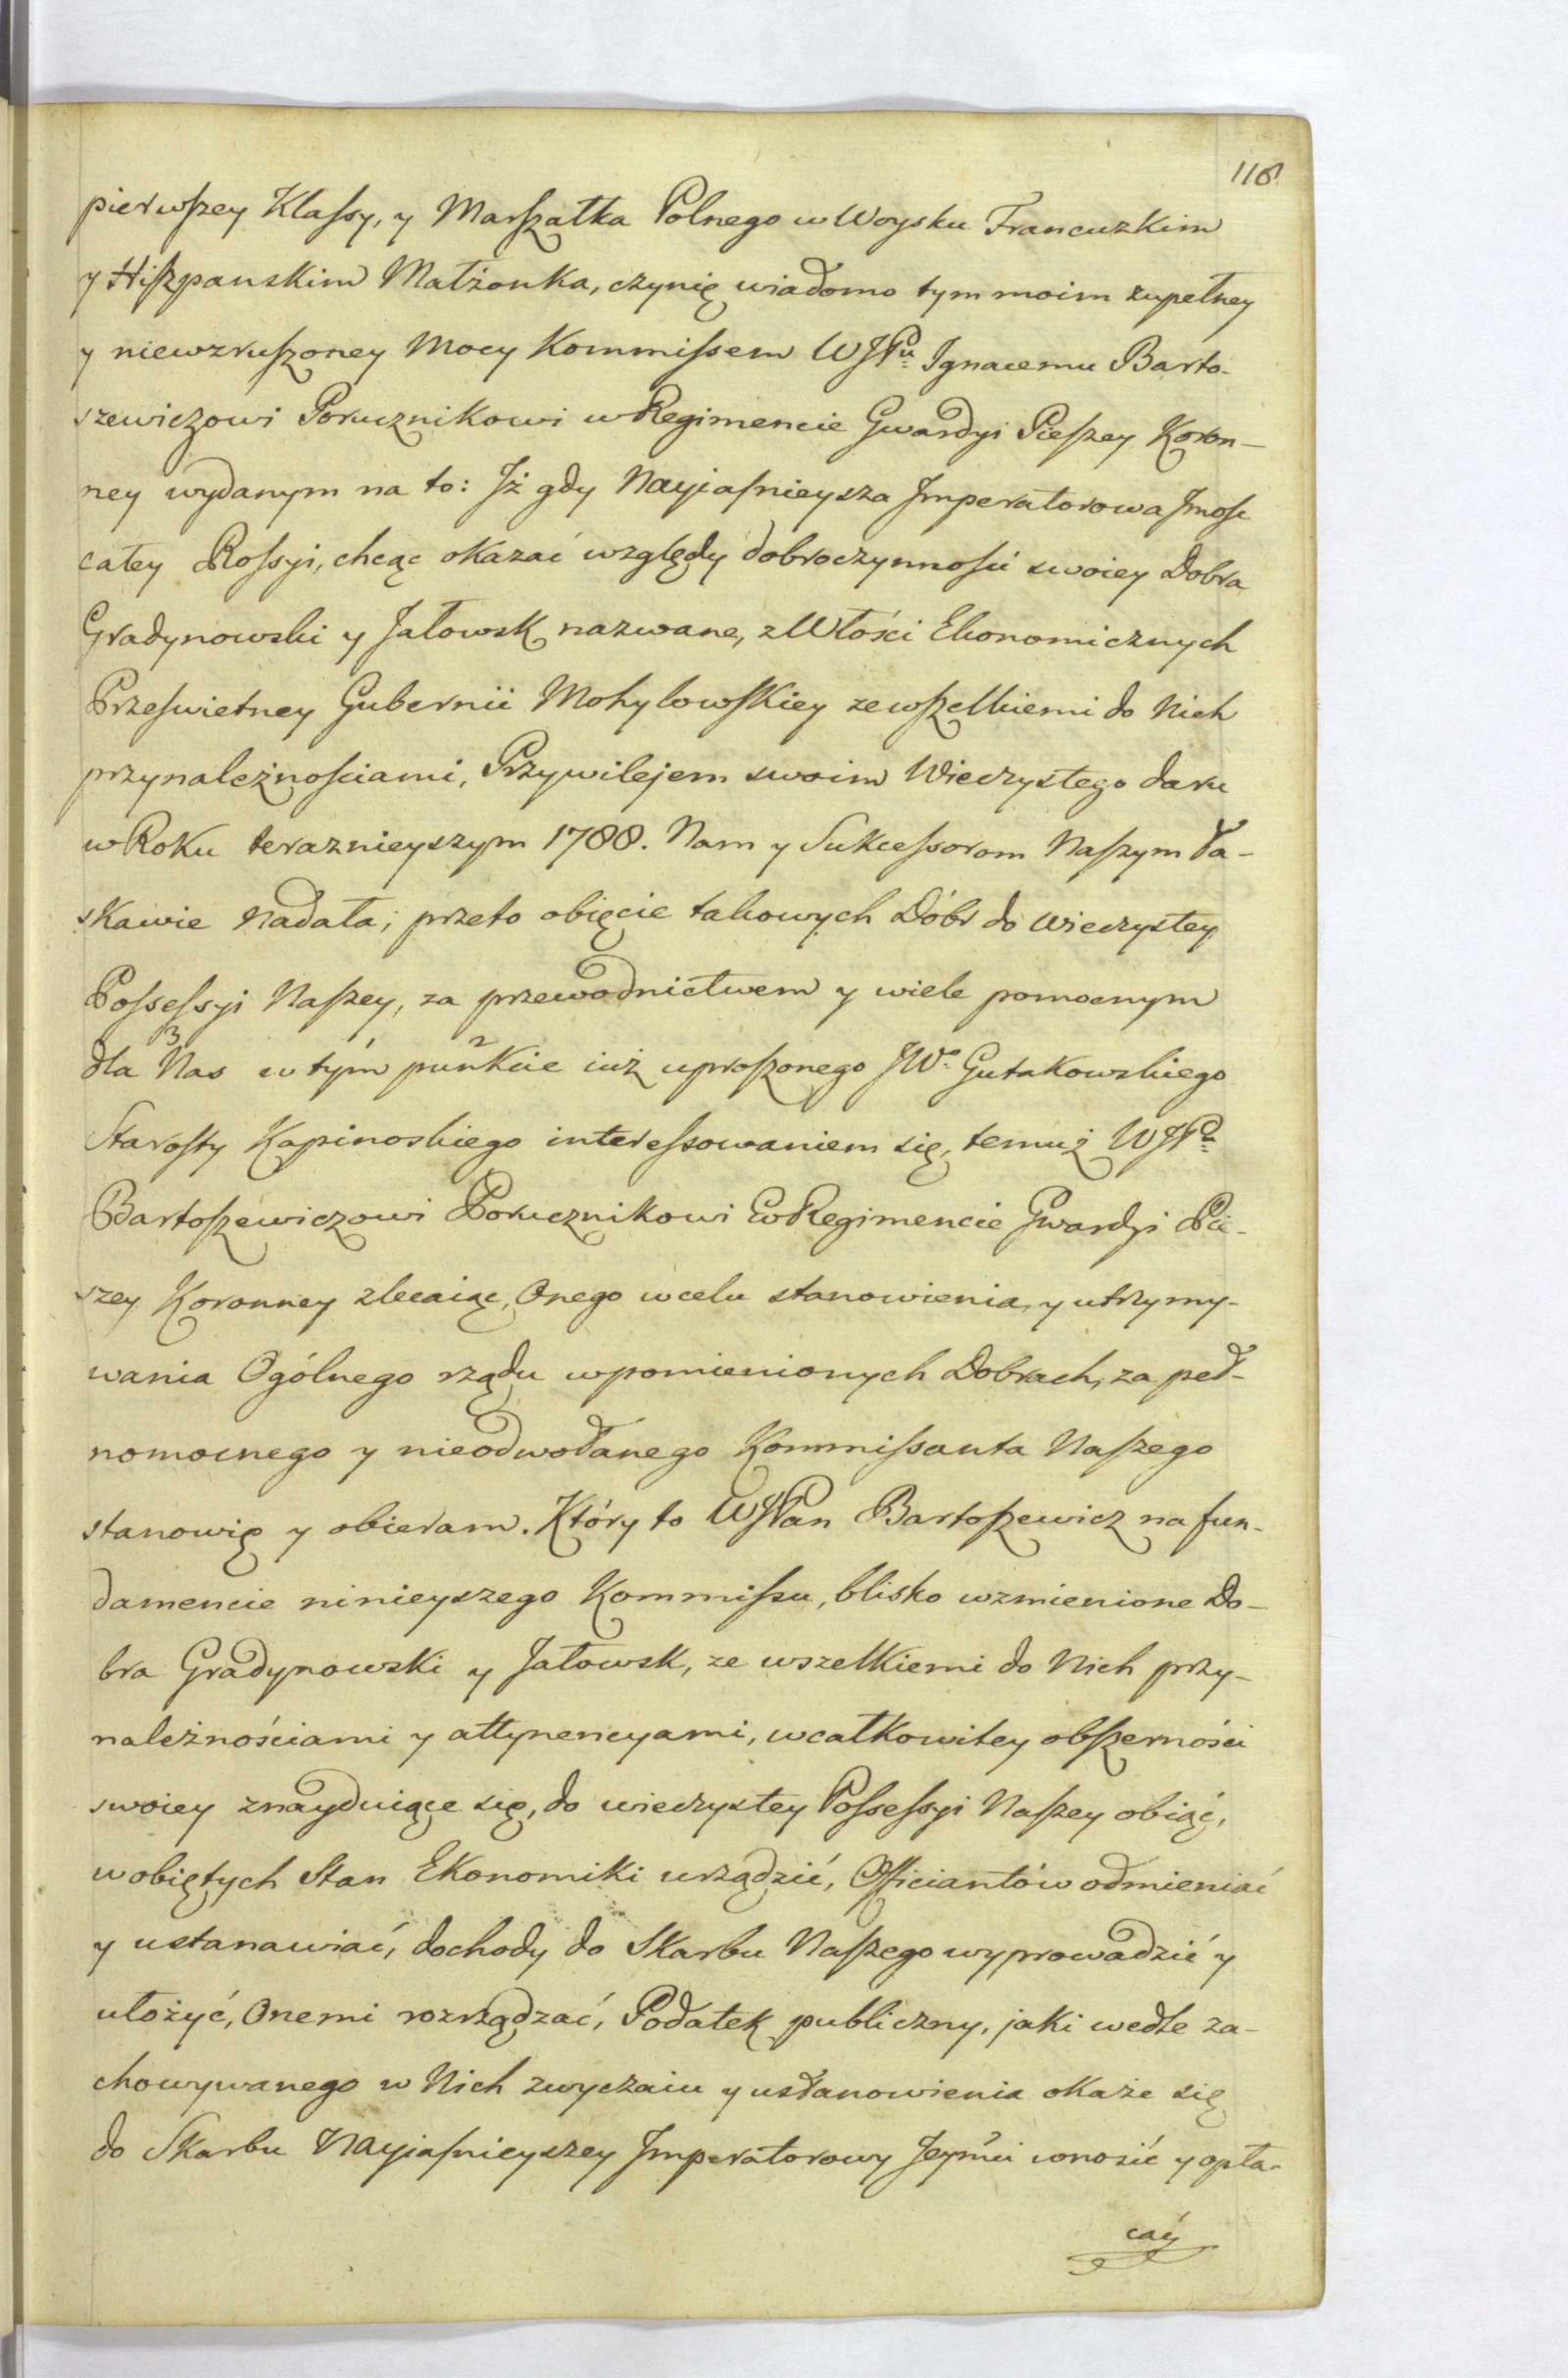 118
pierwszey Klassy, y Marszałka Polnego w Woysku Francuzkim
y Hiszpanskim Małżonka, czynię wiadomo tym moim zupełney
y niewzruszoney Mocy Kommissem WJPu Ignacemu Barto-
szewiczowi Porucznikowi w Regimencie Gwardyi Pieszey Koron-
ney wydanym na to: Jż gdy Nayiasnieysza Jmperatorowa Jmość
całey Rossyi, chcąc okazać względy dobroczynności swoiey Dobra
Gradynowski y Jałowsk nazwane, z Włości Ekonomicznych
Przeswietney Gubernii Mohylowskiey ze wszelkiemi do Nich
przynależnościami, Przywilejem swoim Wieczystego daru
w Roku teraznieyszym 1788. Nam y Sukcessorom Naszym ła-
skawie Nadała; przeto obięcie takowych Dóbr do wieczystey
Possessyi Naszey, za przewodnictwem y wiele pomocnym
dla Nas w tym punkcie iuż uproszonego JWo Gutakowskiego
3 1 2
Starosty Kapinoskiego interessowaniem się, temuż WJPu
Bartoszewiczowi Porucznikowi w Regimencie Gwardyi Pie-
szey Koronney zlecaiąc, Onego w celu stanowienia, y utrzymy-
wania Ogólnego rządu w pomienionych Dobrach, za peł-
nomocnego y nieodwołanego Kommissanta Naszego
stanowię y obieram. Który to WJPan Bartoszewicz na fun-
damencie ninieyszego Kommissu, blisko wzmienione Do-
bra Gradynowski y Jałowsk, ze wszelkiemi do Nich przy-
należnościami y attynencyami, w całkowitey obszerności
swoiey znayduiące się, do wieczystey Possessyi Naszey obiąć,
w obiętych Stan Ekonomiki urządzić, Officiantów odmieniać
y ustanawiać, dochody do Skarbu Naszego wyprowadzić y
ułożyć, Onemi rozrządzać, Podatek publiczny, jaki wedle za-
chowywanego w Nich zwyczaiu y usłanowienia okaże się
do Skarbu Nayiasnieyszey Jmperatorowy Jeymci wnosić y opła-
cać